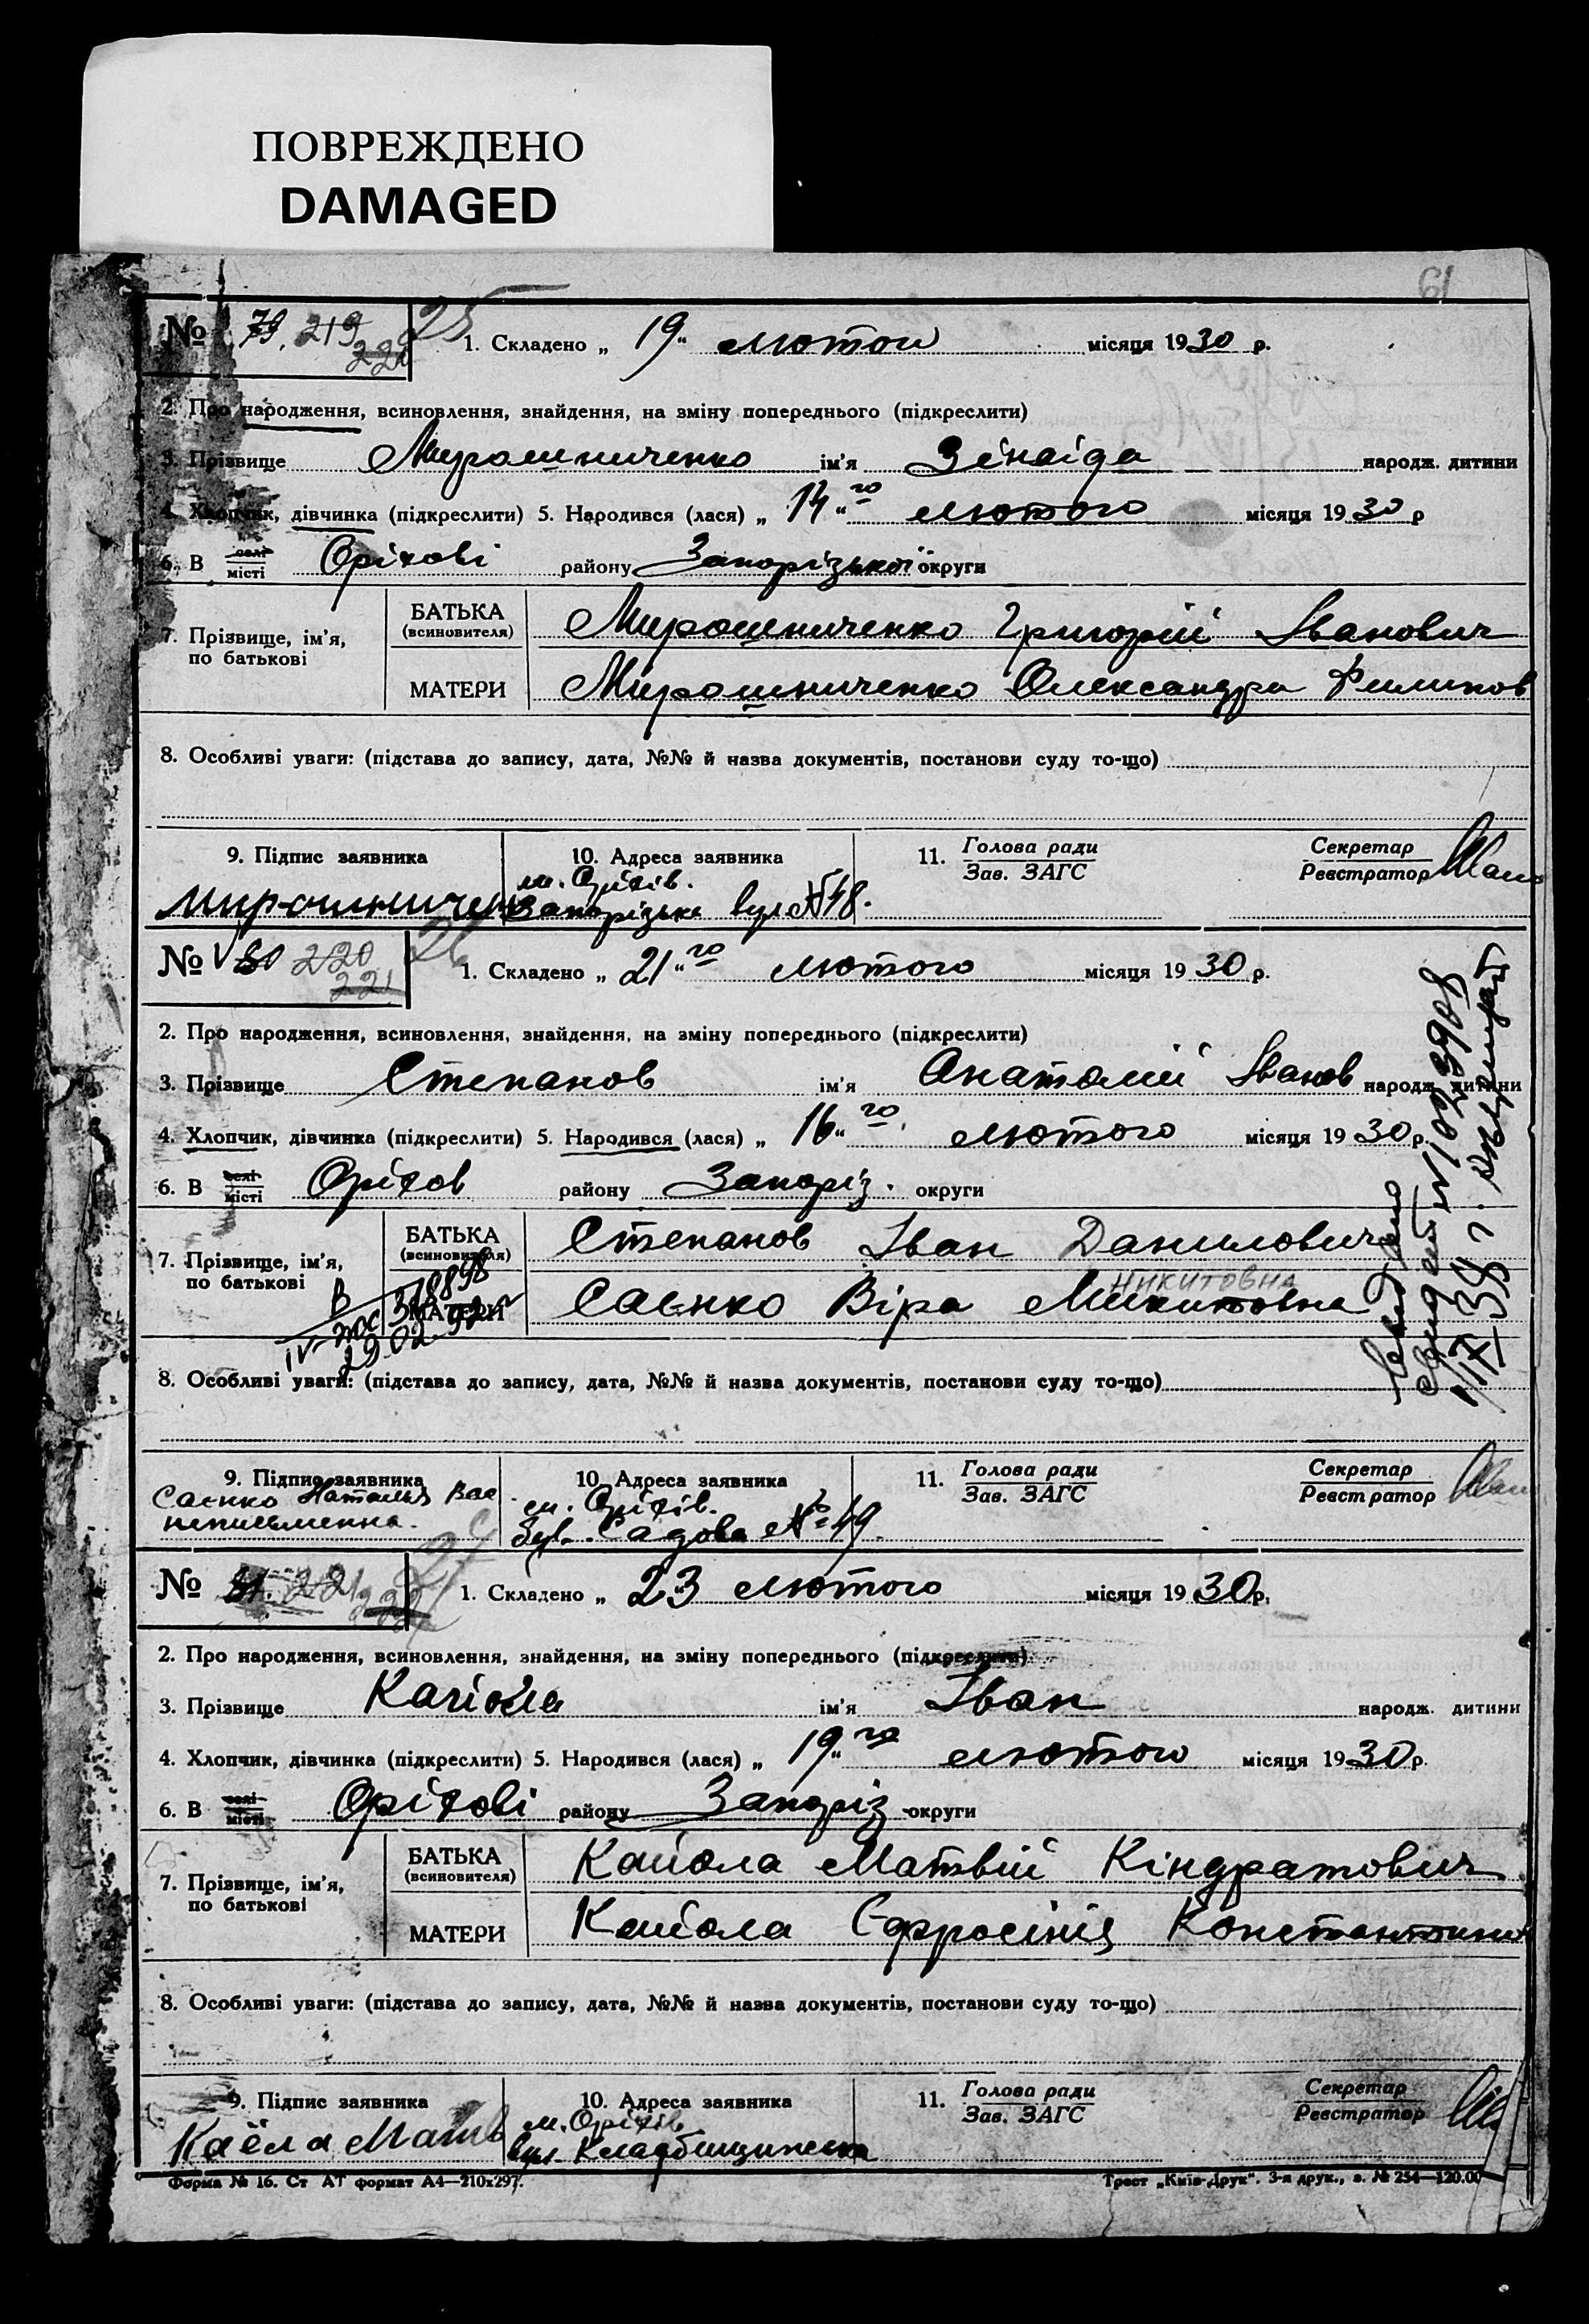 ПОВРЕЖДЕНО
DAMAGED
61
№ 79. 219 25 1. Складено „ 19 “ лютого місяця 1930 р.
220
2. Про народження, всиновлення, знайдення, на зміну попереднього (підкреслити)
3. Прізвище Мирошниченко ім’я Зінаіда народж. дитини
4. Хлопчик, дівчинка (підкреслити) 5. Народився (лася) „ 14 “ го лютого місяця 1930 р
6. В селі місті Оріхові району Запорізької округи
7. Прізвище, ім’я, по батькові
БАТЬКА (всиновителя) Мирошниченко Григорій Іванович
МАТЕРИ Мирошниченко Олександра Филипов
8. Особливі уваги: (підстава до запису, дата, №№ й назва документів, постанови суду то-що)
9. Підпис заявника 10. Адреса заявника 11. Голова ради Зав. ЗАГС Секретар Реєстратор
м. Оріхів.
Мирошничен Запорізька вул № 48.
№ 80 220 26 1. Складено „ 21 “ го лютого місяця 1930 р.
221
2. Про народження, всиновлення, знайдення, на зміну попереднього (підкреслити)
3. Прізвище Степанов ім’я Анатолій Іванов народж. дитини
4. Хлопчик, дівчинка (підкреслити) 5. Народився (лася) „ 16 “ го лютого місяця 1930 р.
6. В селі місті Оріхов району Запоріз. округи
7. Прізвище, ім’я, по батькові
БАТЬКА (всиновителя) Степанов Іван Данилович
НИКИТОВНА
МАТЕРИ Саєнко Віра Микитовна
IV-ЖС 378898
29.02.92
8. Особливі уваги: (підстава до запису, дата, №№ й назва документів, постанови суду то-що)
9. Підпис заявника 10. Адреса заявника 11. Голова ради Зав. ЗАГС Секретар Реєстратор
Саєнко Наталья Вас м. Оріхів.
неписьменна. Вул. Садова № 49.
№ 81. 221 27 1. Складено „ 23 лютого місяця 1930 р.
222
2. Про народження, всиновлення, знайдення, на зміну попереднього (підкреслити)
3. Прізвище ім’я Іван народж. дитини
4. Хлопчик, дівчинка (підкреслити) 5. Народився (лася) „ 19 “ го лютого місяця 1930 р.
6. В селі місті Оріхові району Запоріз округи
7. Прізвище, ім’я, по батькові
БАТЬКА (всиновителя) Кайола Матвій Кіндратович
МАТЕРИ Кайола Єфросінія Константинов
8. Особливі уваги: (підстава до запису, дата, №№ й назва документів, постанови суду то-що)
9. Підпис заявника 10. Адреса заявника 11. Голова ради Зав. ЗАГС Секретар Реєстратор
м. Оріхів
Каёла Матв вул. Кладбищинська
Форма № 16. Ст АТ формат А4—210х297. Трест „Київ-Друк“. 3-я друк., з. № 254—120.00